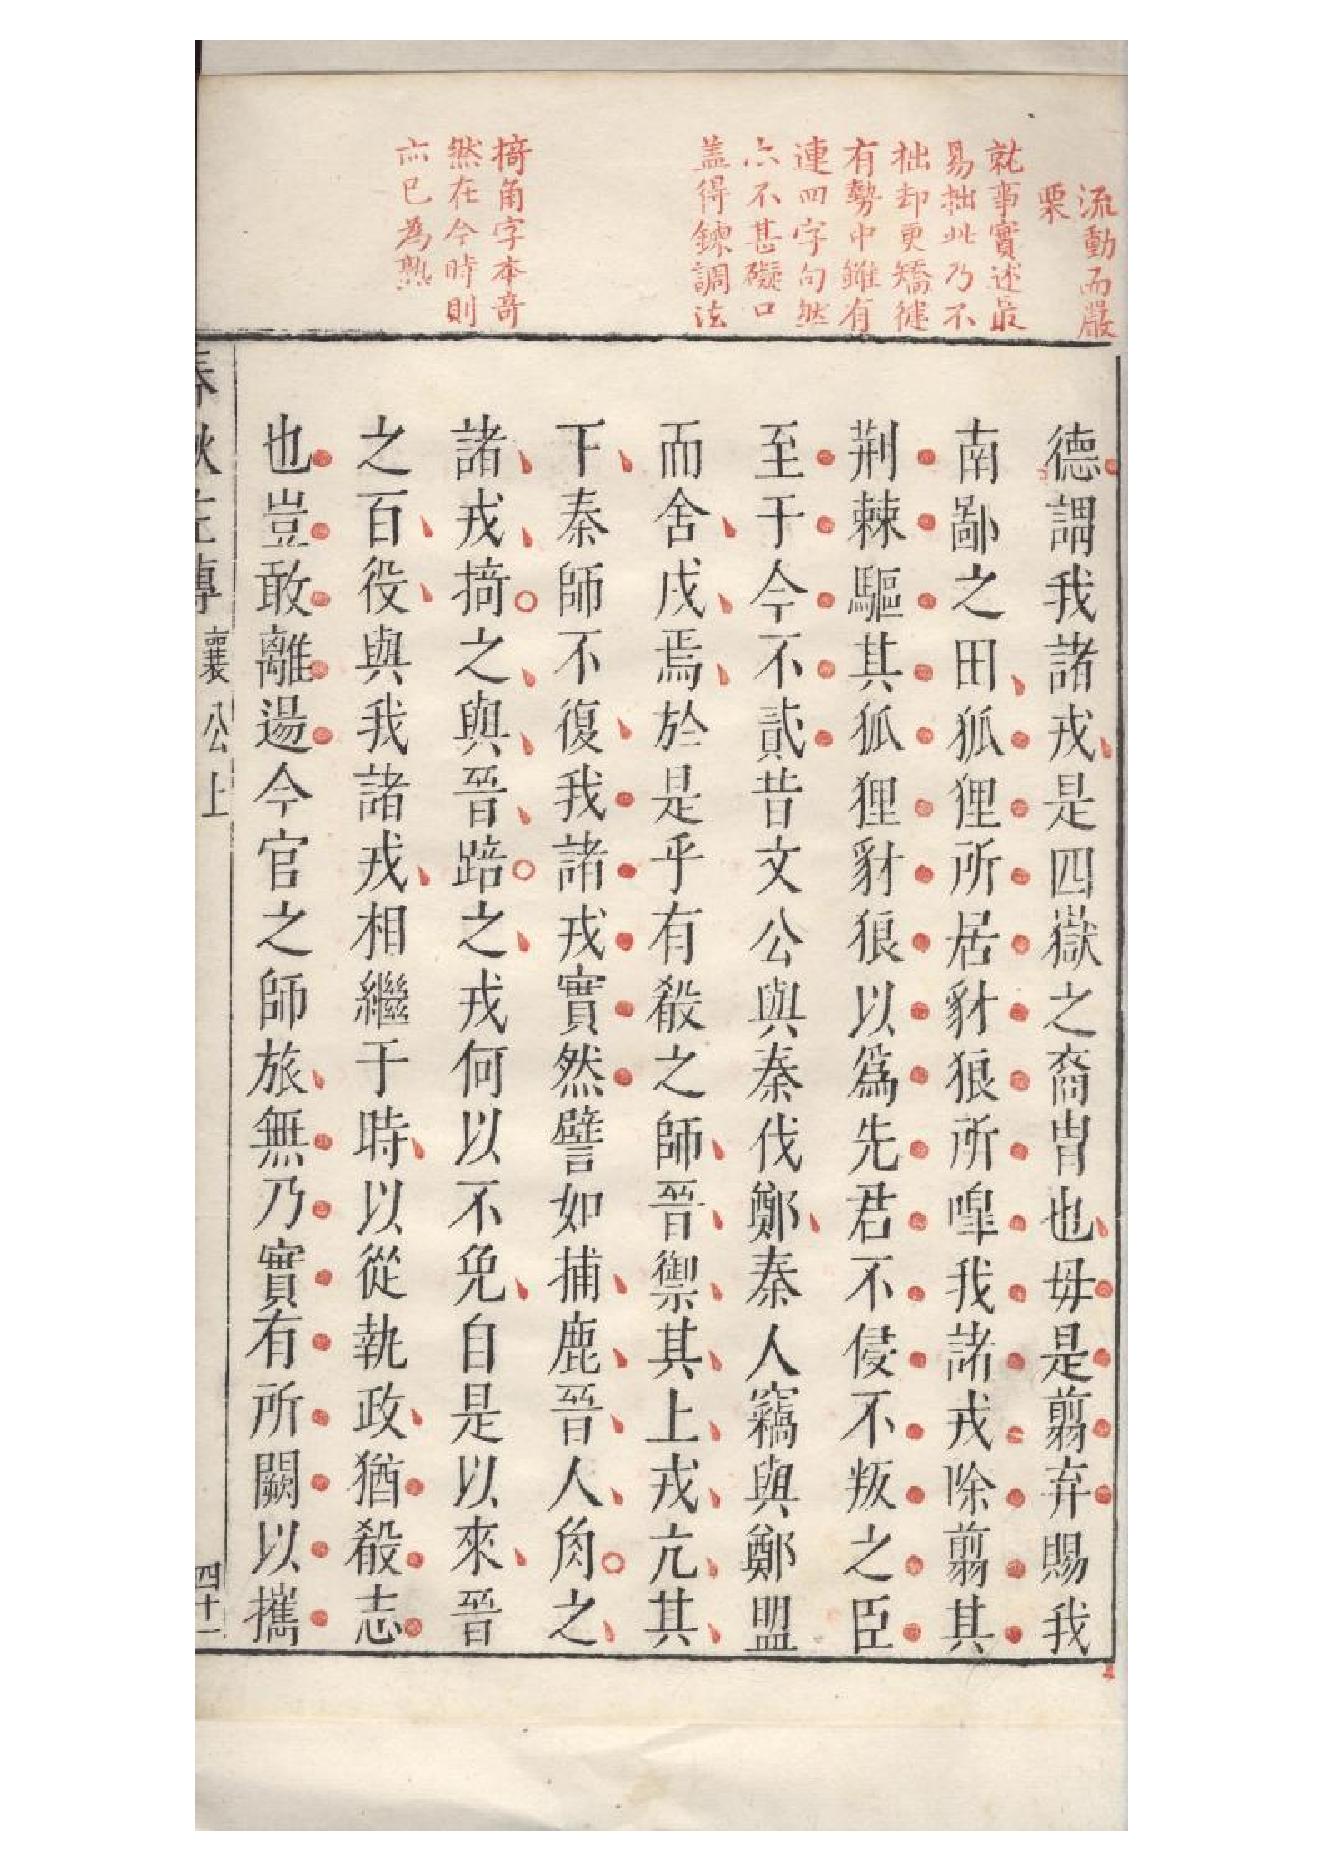 流動而嚴
栗
就事實述最
易拙此乃不
拙却更矯健
有勢中雖有
連四字句然
亦不甚礙口
盖得鍊調法
掎角字本竒
然在今時則
亦已為熟
德謂我諸戎是四嶽之裔胄也毋是翦弃賜我
南鄙之田狐狸所居豺狼所嘷我諸戎除翦其
荆棘驅其狐狸豺狼以爲先君不侵不叛之臣
至于今不貳昔文公與秦伐鄭秦人竊與鄭盟
而舍戍焉於是乎有殽之師晉禦其上戎亢其
下秦師不復我諸戎實然譬如捕鹿晉人角之
諸戎掎之與晉踣之戎何以不免自是以來晉
之百役與我諸戎相繼于時以從執政猶殽志
也豈敢離逷今官之師旅無乃實有所闕以攜
春秋左傳 襄公上 四十一